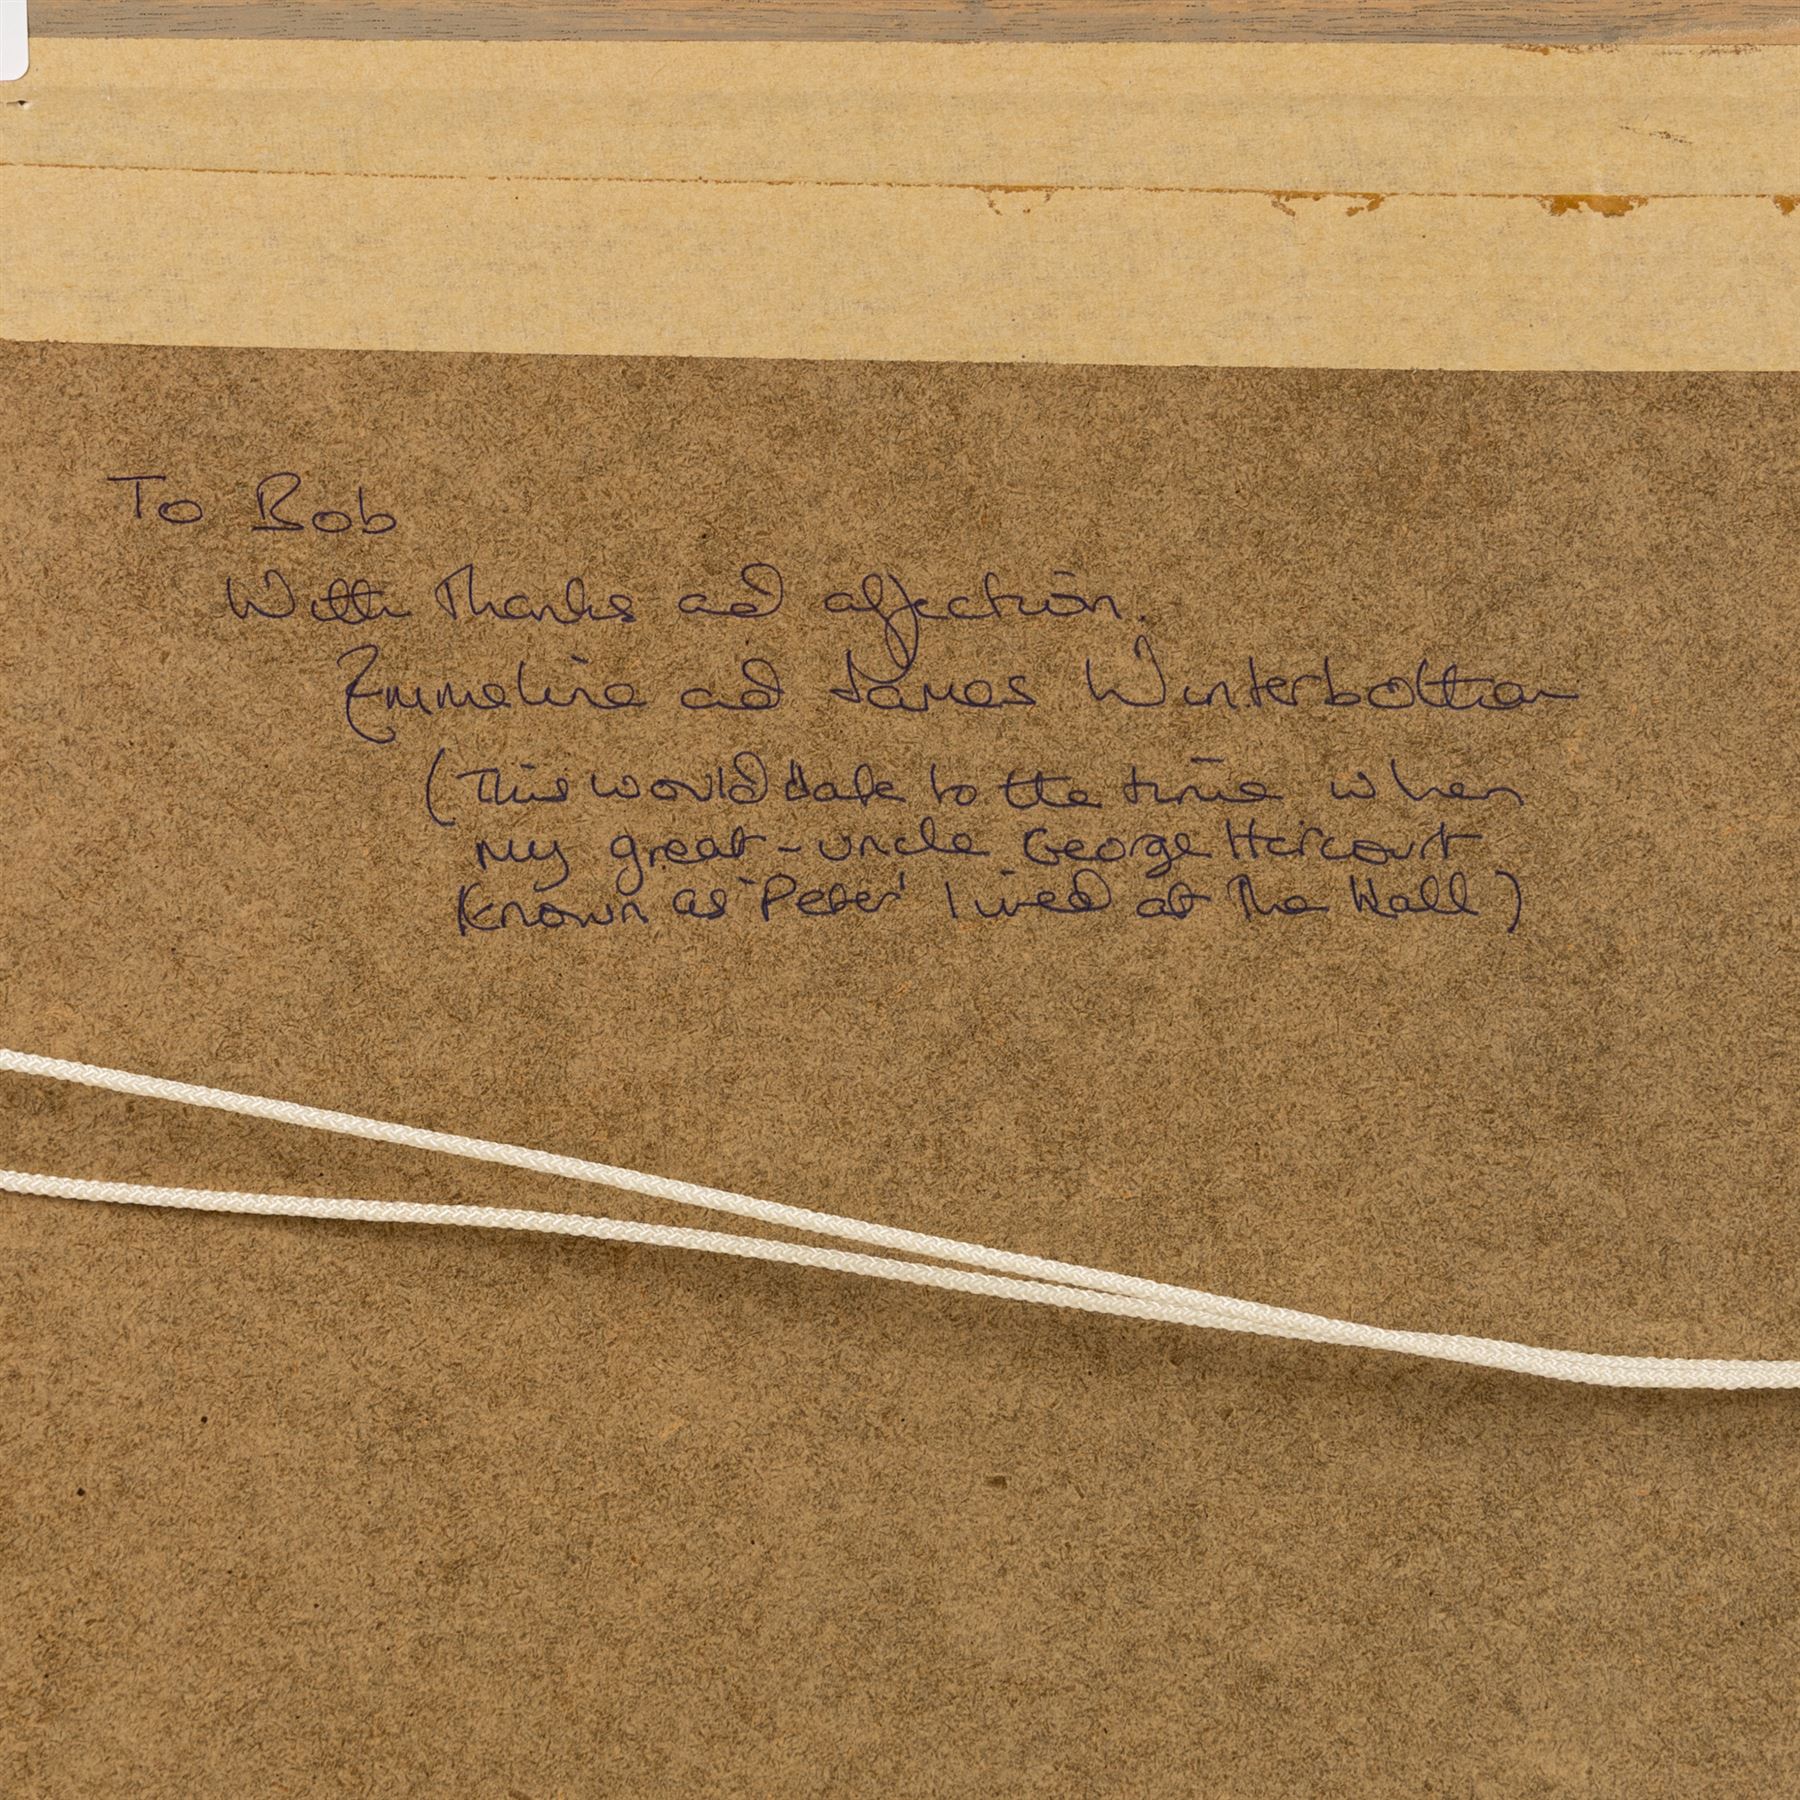 To Bob
With Thanks ad affection.
Emmeline ad James Winterbottom
(This would date to the time when
my great-uncle George Harcourt
known as 'Peter' lived at The Hall)